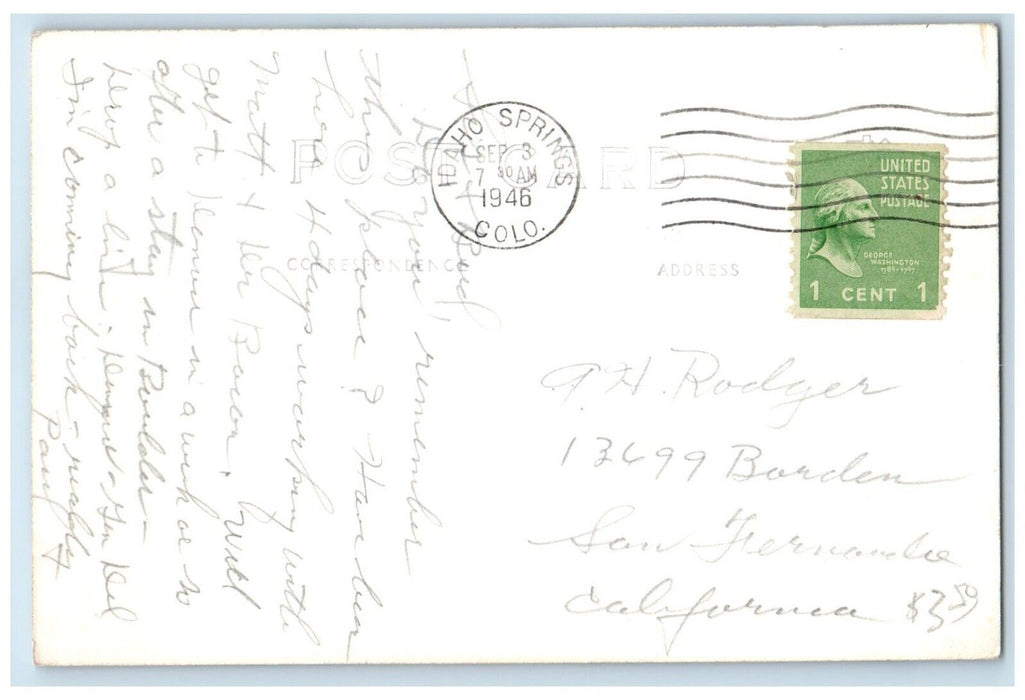 POST CARD
CORRESPONDENCE
ADDRESS
IDAHO SPRINGS
SEP 3
7 30 AM
1946
COLO.
UNITED
STATES
POSTAGE
GEORGE
WASHINGTON
1789-1797
1 CENT 1
Bud,
Do you remember
this place? Have been
here 4 days working with
Matt & Bacon. Will
get to Denver in a week or so
after a stay in Boulder -
Drop a line. Denver - Gen Del
I'm coming back - really
A. H. Rodger
13699 Borden
San Fernando
California $3.50